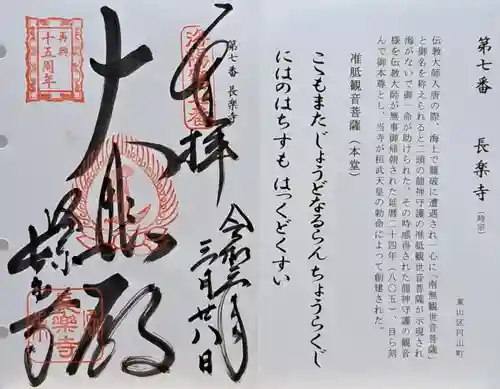 第七番　長楽寺（時宗）
東山区円山町
伝教大師入唐の際、海上で難破に遭遇され一心に「南無観世音菩薩」
と御名を称えられると二頭の龍神守護の准胝観音菩薩が示現され
海がないで御一命が助けられた。その時感得された龍神守護の観音
様を伝教大師が無事御帰朝された延暦二十四年（八〇五）、自ら刻
んで御本尊とし、当寺が桓武天皇の勅命によって創建された。
准胝観音菩薩（本堂）
こゝもまた じょうどなるらん ちょうらくじ
にはのはちすも はつくどくすい
第七番　長楽寺
奉拝
令和三年
三月廿八日
大悲殿
長楽寺
再興
十五周年
長楽寺